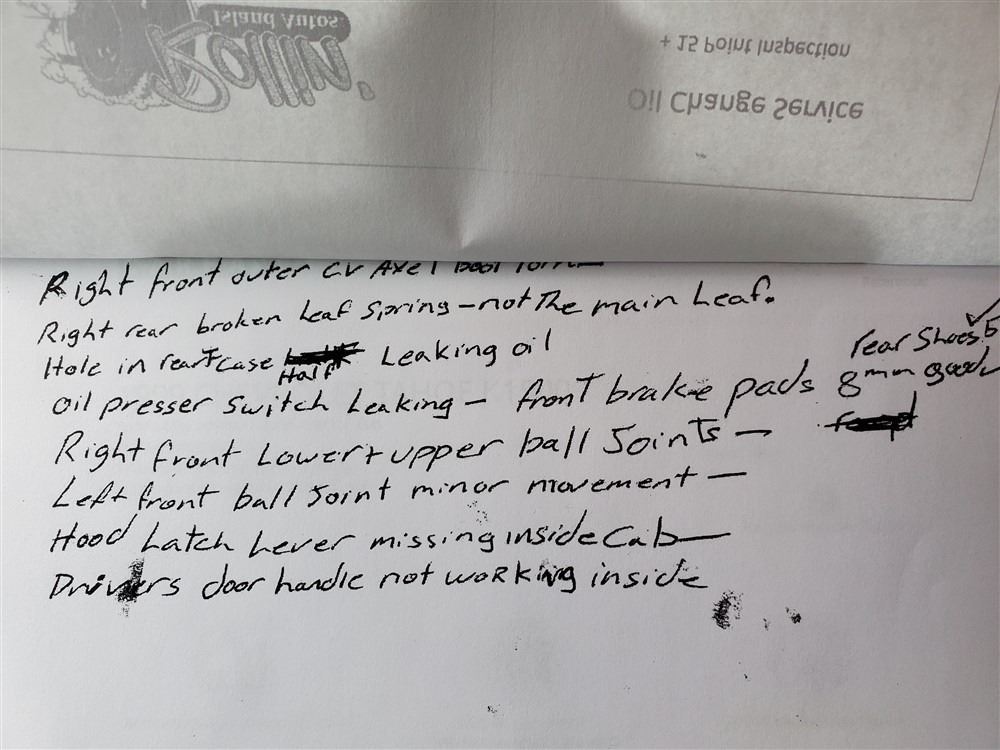 Island Autos
Rollin'
+ 15 Point Inspection
Oil Change Service
Right front outer CV Axel boot torn
Right rear broken Leaf Spring - not The main Leaf.
Hole in rear T case Half Leaking oil
rear Shoes 5
Oil presser Switch Leaking - front brake pads 8mm good
Right front Lower + upper ball Joints -
Left front ball Joint minor movement -
Hood Latch Lever missing inside Cab -
Drivers door handle not working inside